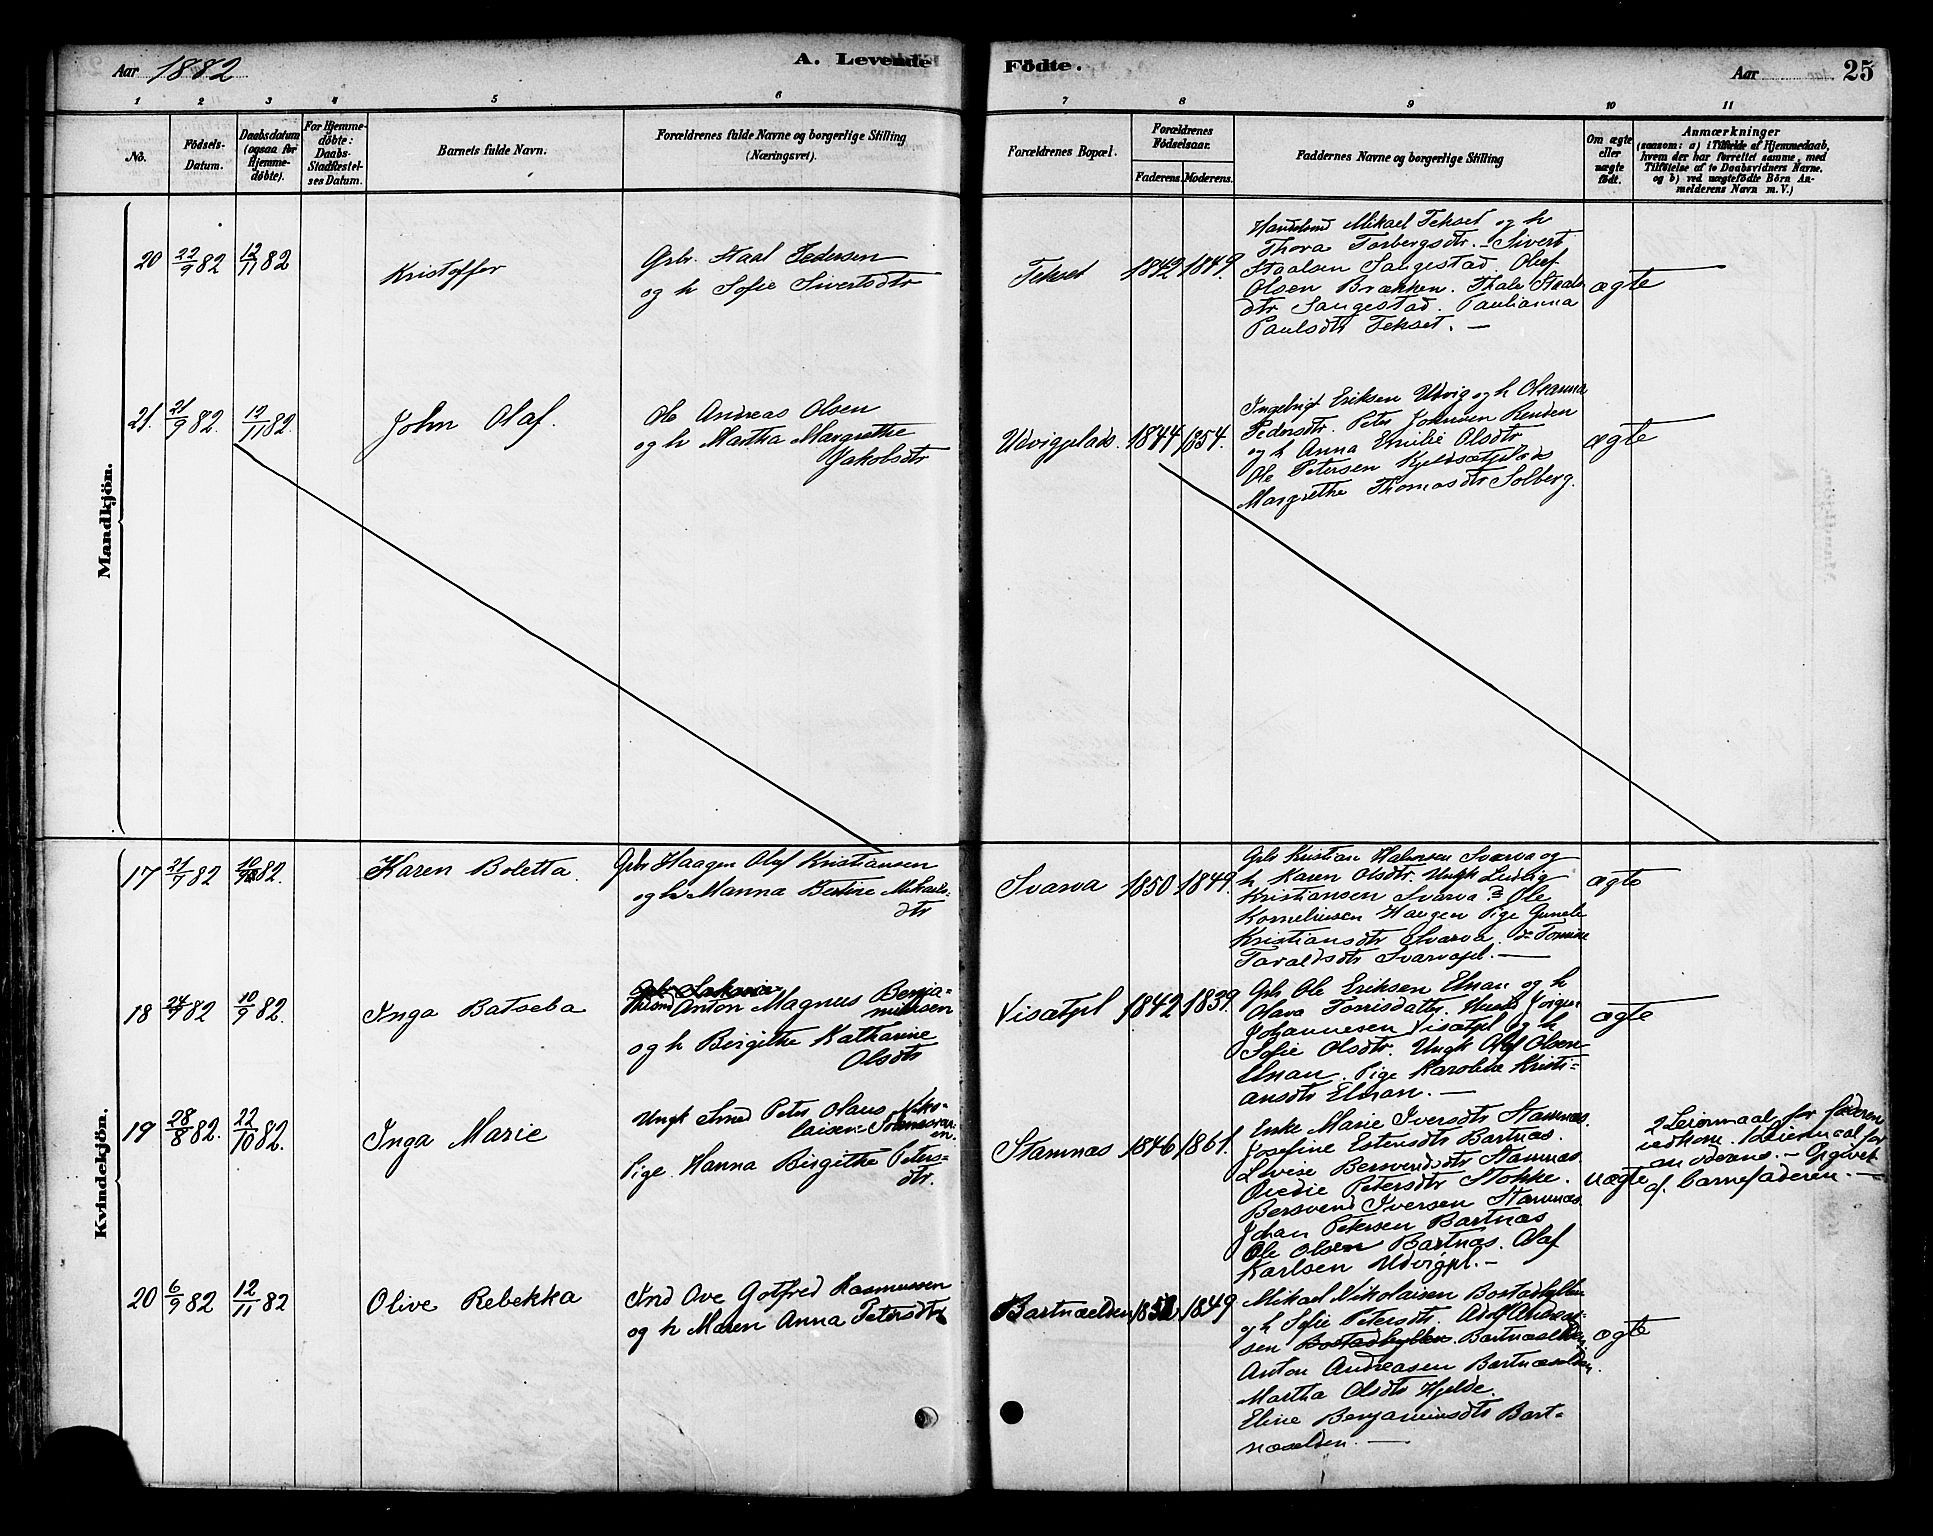 Aar 1882
A. Levende Födte.
Aar 25
1 2 3 4 5 6 7 8 9 10 11
No.
Födsels-
Datum.
Daabsdatum
(ogsaa for
Hjemme-
döbte).
For Hjemme-
döbte:
Daabs-
Stadfæstel-
ses Datum.
Barnets fulde Navn.
Forældrenes fulde Navne og borgerlige Stilling
(Næringsvei).
Forældrenes Bopæl.
Forældrenes
Födselsaar.
Faderens. Moderens.
Faddernes Navne og borgerlige Stilling
Om ægte
eller
uægte
födt.
Anmærkninger
(saasom: a) i Tilfælde af Hjemmedaab,
hvem der har forrettet samme, med
Tilföielse af to Daabsvidners Navne.
og b) ved uægtefödte Börn An-
melderens Navn m. V.)
Mandkjön.
20 22/9 82 12/11 82
Kristoffer
Gbr. Staal Pedersen
og h Sofie Sivertsdtr
Tekset
1842 1849.
Mikael Tekset og h
Thora Torbergsdtr. - Sivert
Staalsen Saugestad. Olef
Olsen Brækken. Thale Staals
dtr Saugestad. Paulianna
Paulsdtr Tekset. —
ægte
21. 21/9 82. 12/11 82.
John Olaf.
Ole Andreas Olsen
og h Martha Margrethe
Jakobsdtr
Udvigplads.
1844 1854.
Ingebrigt Eriksen Udvig og h Oleanna
Pedersdtr. Peter Johnsen Renden
og h Anna Emilie Olsdtr
Ole Petersen Kjeldsætplads
Margrethe Thomasdtr Solberg.
ægte
Kvindekjön.
17 21/7 82 10/9 82.
Karen Boletta.
Gbr Haagen Olaf Kristiansen
og h Manna Bertine Mikaels
dtr
Svarva
1850 1849.
Gbr Kristian Halvorsen Svarva og
h Karen Olsdtr. Ungk Ludvig
Kristiansen Svarva Do Ole
Korneliusen Haugen Pige Gunele
Kristiansdtr Svarva. Do Tomine
Taraldsdtr Svarvapl. —
ægte
18 24/7 82 10/9 82.
Inga Batseba
Anton Magnus Benja-
minsen
og h Birgithe Katharine
Olsdtr
Visætpl
1842 1839.
Gbr Ole Eriksen Elnan og h
Olava Tonrisdatter. Husm Jørgen
Johannesen Visætpl og h
Sofie Olsdtr. Ungk Olaf Olsen
Elnan. Pige Karoline Kristi-
ansdtr Elnan. —
ægte
19 28/8 82. 22/10 82.
Inga Marie
Ungk Ind Peter Olaus Niko-
laisen
Pige. Hanna Birgithe Peters-
dtr.
Stamnas
1846 1861.
Enke Marie Iversdtr Stamnas.
Josefine Estensdtr Bartnas.
Lovise Bersvendsdtr Stamnas
Petersdtr Stokke.
Bersvend Iversen Stamnas
Johan Petersen Bartnas
Ole Olsen Bartnas. Olaf
Karlsen Udvigpl. —
uægte
2 Leiermaal for faderen
1 Leiermaal for
moderens. — Opgivet
af barnefaderen. —
20 6/9 82 12/11 82
Olive Rebekka
Ind Ove Gotfred Rasmussen
og h Maren Anna Petersdtr
Bartnæelden
1852 1849
Mikael Nikolaisen Bostadhyllen
og h Sofie Petersdtr. Adolf Andrea-
sen Bostadhyllen. Bartnæselden
Anton Andreasen Bartnæselden.
Martha Olsdtr Hjelde.
Eline Benjaminsdtr Bart-
næselden. —
ægte